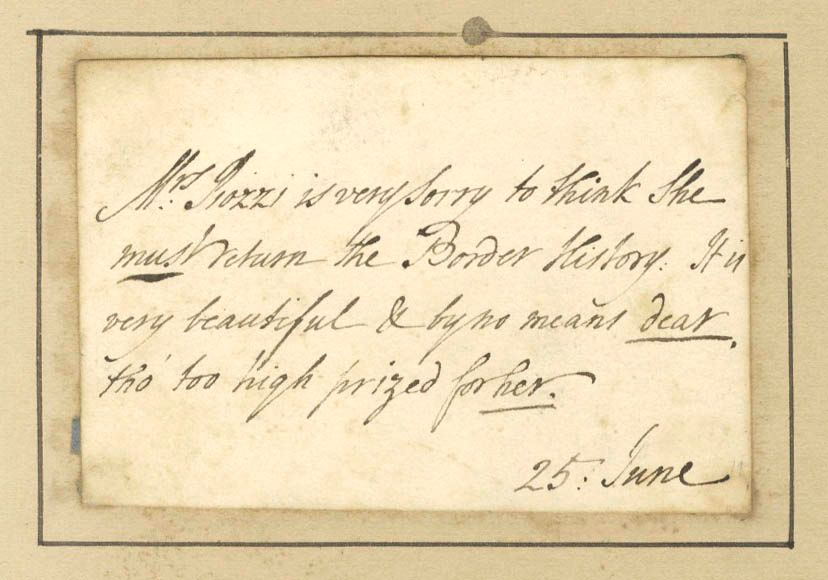 Mrs. Piozzi is very sorry to think She
must return the Border History. It is
very beautiful & by no means dear,
tho' too high prized for her.
25: June